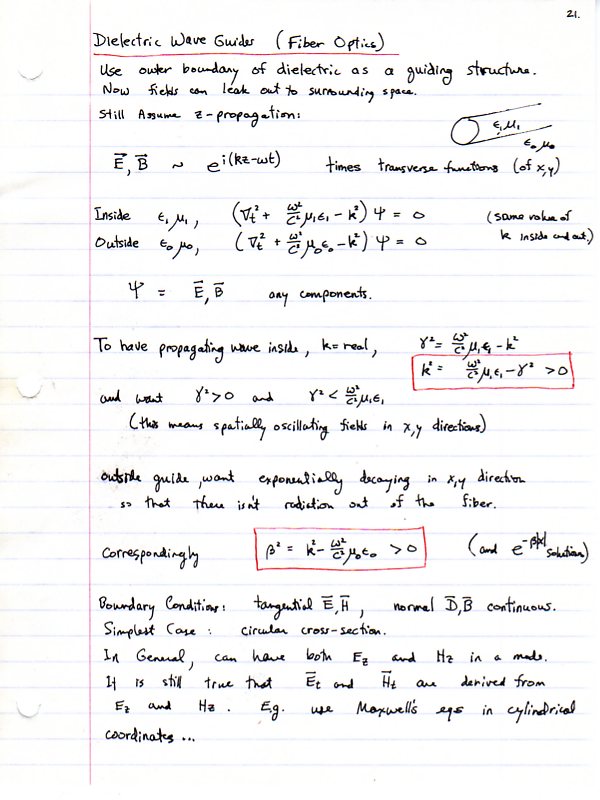 21.
Dielectric Wave Guides (Fiber Optics)
Use outer boundary of dielectric as a guiding structure.
Now fields can leak out to surrounding space.
Still Assume z-propagation:
ε₁μ₁
ε₀μ₀
E⃗, B⃗ ~ e^{i(kz-ωt)} times transverse functions (of x,y)
Inside ε₁μ₁, (∇ₜ² + ω²/c² μ₁ε₁ - k²) Ψ = 0 (same value of
Outside ε₀μ₀, (∇ₜ² + ω²/c² μ₀ε₀ - k²) Ψ = 0 k inside and out.)
Ψ = E⃗, B⃗ any components.
To have propagating wave inside, k = real, γ² = ω²/c² μ₁ε₁ - k²
k² = ω²/c² μ₁ε₁ - γ² > 0
and want γ² > 0 and γ² < ω²/c² μ₁ε₁
(this means spatially oscillating fields in x,y directions)
outside guide, want exponentially decaying in x,y direction
so that there isn't radiation out of the fiber.
Correspondingly β² = k² - ω²/c² μ₀ε₀ > 0 (and e^{-β|x|} solution)
Boundary Conditions: tangential E⃗, H⃗, normal D⃗, B⃗ continuous.
Simplest Case: circular cross-section.
In General, can have both Ez and Hz in a mode.
It is still true that E⃗t and H⃗t are derived from
Ez and Hz. E.g. use Maxwell's eqs in cylindrical
coordinates...